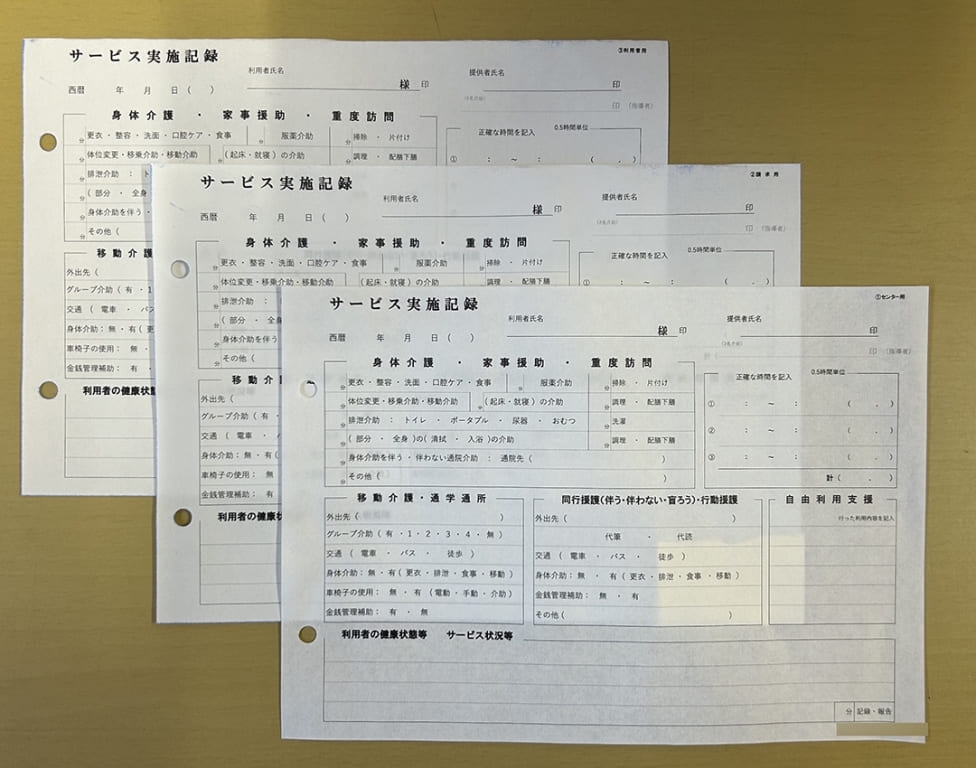 サービス実施記録
③利用者用
利用者氏名 様 印
提供者氏名 印
西暦 年 月 日 ( )
印 (指導者)
身体介護 ・ 家事援助 ・ 重度訪問
分 更衣・整容・洗面・口腔ケア・食事 分 服薬介助 分 掃除 ・ 片付け
分 体位変更・移乗介助・移動介助 分 (起床・就寝)の介助 分 調理 ・ 配膳下膳
正確な時間を記入 0.5時間単位
① : ~ : ( . )
分 排泄介助 : ト
分 ( 部分 ・ 全身
分 身体介助を伴う・
分 その他 (
移動介護
外出先 (
グループ介助 ( 有 ・1
交通 ( 電車 ・ バス
身体介助: 無 ・有( 更
車椅子の使用: 無 ・
金銭管理補助: 有
利用者の健康状態
サービス実施記録
②請求用
利用者氏名 様 印
提供者氏名 印
西暦 年 月 日 ( )
印 (指導者)
身体介護 ・ 家事援助 ・ 重度訪問
分 更衣・整容・洗面・口腔ケア・食事 分 服薬介助 分 掃除 ・ 片付け
分 体位変更・移乗介助・移動介助 (起床・就寝)の介助 調理 ・ 配膳下膳
正確な時間を記入 0.5時間単位
① : ~ : ( . )
分 排泄介助 :
分 ( 部分 ・ 全身
分 身体介助を伴う
分 その他 (
移動介
外出先 (
グループ介助 ( 有 ・
交通 ( 電車 ・
身体介助: 無 ・有(
車椅子の使用: 無
金銭管理補助: 有
利用者の健康状
サービス実施記録
①センター用
利用者氏名 様 印
提供者氏名 印
西暦 年 月 日 ( )
印 (指導者)
身体介護 ・ 家事援助 ・ 重度訪問
分 更衣・整容・洗面・口腔ケア・食事 分 服薬介助 分 掃除 ・ 片付け
分 体位変更・移乗介助・移動介助 分 (起床・就寝)の介助 分 調理 ・ 配膳下膳
分 排泄介助 : トイレ ・ ポータブル ・ 尿器 ・ おむつ 分 洗濯
分 ( 部分 ・ 全身 )の( 清拭 ・ 入浴 )の介助 分 調理 ・ 配膳下膳
分 身体介助を伴う・伴わない通院介助 : 通院先 ( )
分 その他 ( )
正確な時間を記入 0.5時間単位
① : ~ : ( . )
② : ~ : ( . )
③ : ~ : ( . )
計 ( . )
移動介護・通学通所
外出先 ( )
グループ介助 ( 有 ・1・2・3・4・ 無 )
交通 ( 電車 ・ バス ・ 徒歩 )
身体介助: 無 ・有( 更衣 ・排泄 ・食事 ・移動 )
車椅子の使用: 無 ・ 有 ( 電動・手動・介助 )
金銭管理補助: 有 ・ 無
同行援護(伴う・伴わない・盲ろう)・行動援護
外出先 ( )
代筆 ・ 代読
交通 ( 電車 ・ バス ・ 徒歩 )
身体介助: 無 ・ 有 ( 更衣 ・排泄 ・食事 ・移動 )
金銭管理補助: 無 ・ 有
その他 ( )
自由利用支援
行った利用内容を記入
利用者の健康状態等 サービス状況等
分 記録・報告